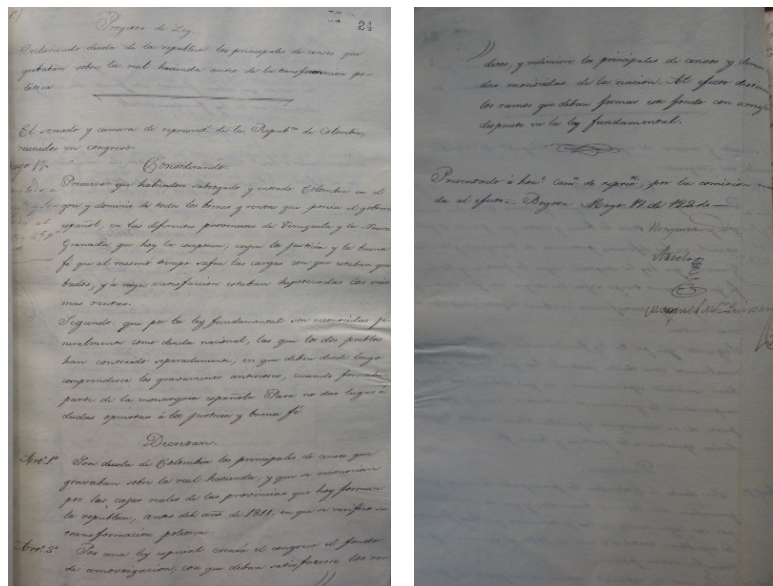 Proyecto de Ley
Declarando deuda de la republica los principales de censos que
gravaban sobre la real hacienda antes de la transformacion po-
litica
El senado y camara de represent.s de la Repub.ca de Colombia,
reunidos en congreso.
Considerando.
Primero: que habiendo subrogado y entrado Colombia en el
goce y dominio de todos los bienes y rentas que poseia el gobierno
español, en las diferentes provincias de Venezuela, y la Nueva
Granada que hoy la componen; exijen la justicia y la buena
fé que al mismo tiempo sufra las cargas con que estaban gra-
bados, y á cuya satisfaccion estaban hipotecadas las mis-
mas rentas.
Segundo, que por la ley fundamental son reconocidas
como deuda nacional, las que los dos pueblos
han contraido separadamente; en que deben desde luego
comprenderse los gravamenes anteriores, cuando formaban
parte de la monarquia española. Para no dar lugar á
dudas opuestas á la justicia y buena fé
Decretan.
Art.o 1.o Son deuda de Colombia los principales de censos que
gravaban sobre la real hacienda, y que se reconocian
por las cajas reales de las provincias que hoy forman
la republica, antes del año de 1811, en que se verificó su
transformacion politica.
Art.o 2.o Por una ley especial creará el congreso el fondo
de amortizacion, con que deban satisfacerse los
ditos, y redimirse los principales de censos y demas
deudas reconocidas de la nacion. Al efecto
los ramos que deban formar este fondo con arreglo
dispuesto en la ley fundamental.
Presentado á la hon.l cam.a de repres.s por la comision
da al efecto. Bogota Mayo 11 de